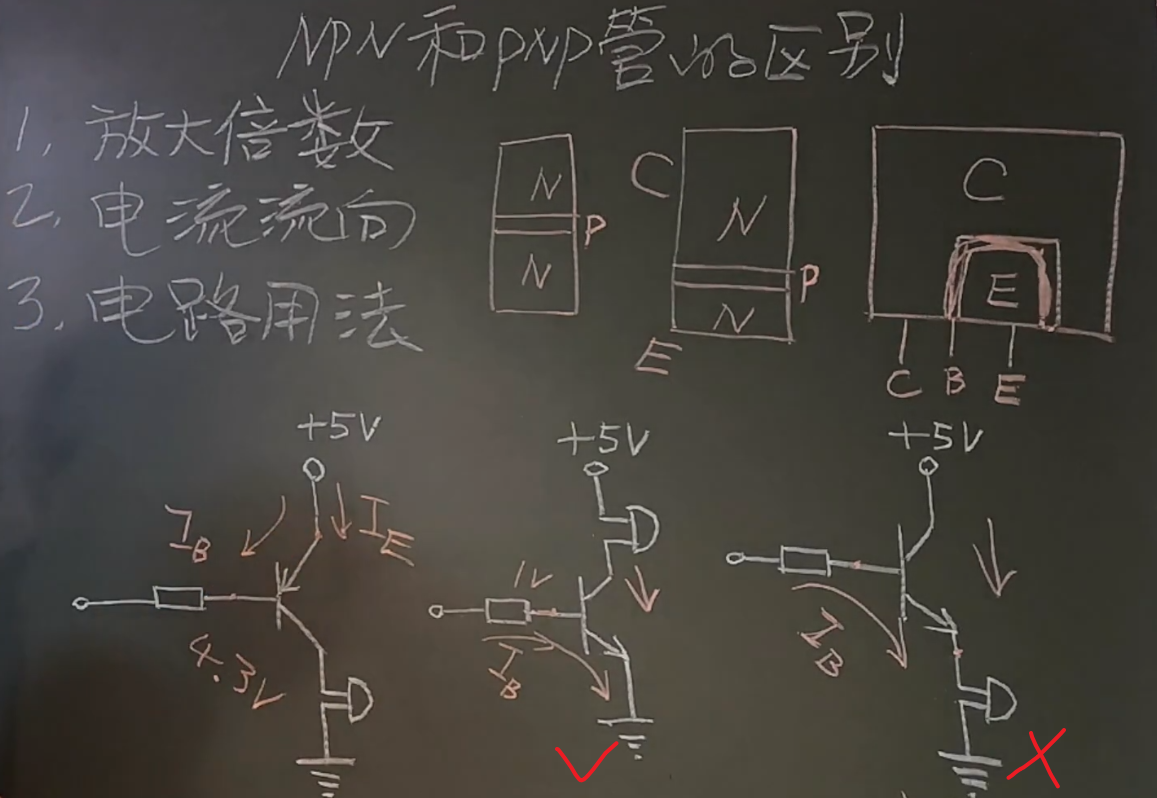 NPN和PNP管的区别
1、放大倍数
2、电流流向
3、电路用法
N
P
N
C
N
P
N
E
C
E
C B E
+5V
I_B
I_E
4.3V
+5V
1V
I_B
+5V
I_B